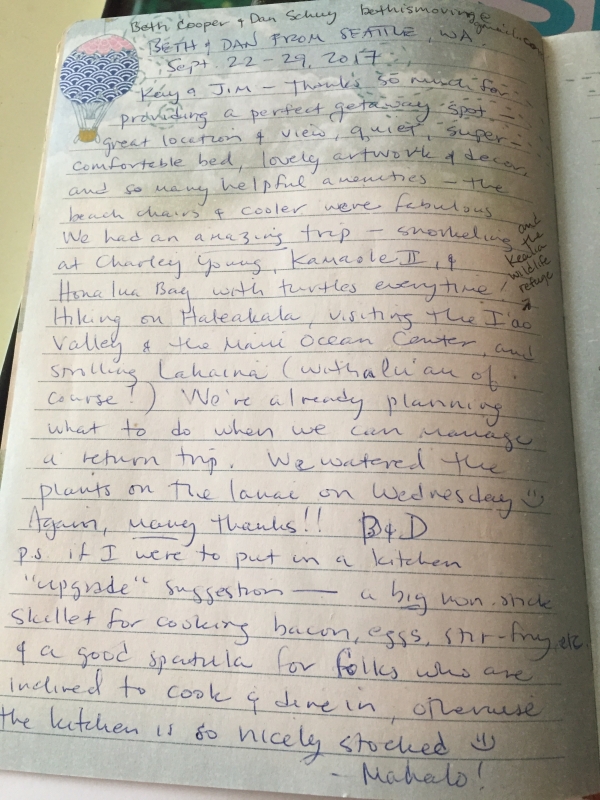 Beth Cooper & Dan Schuy bethismoving@gmail.com
BETH & DAN FROM SEATTLE, WA
Sept. 22-29, 2017
Kay & Jim - Thanks so much for
providing a perfect getaway spot -
great location & view, quiet, super-
comfortable bed, lovely artwork & decor
and so many helpful amenities - the
beach chairs & cooler were fabulous
We had an amazing trip - snorkeling
at Charley Young, Kamaole II, &
Honalua Bay with turtles everytime!
and
the
Kealia
wildlife
refuge
Hiking on Haleakala, visiting the I'ao
Valley & the Maui Ocean Center, and
strolling Lahaina (with a lu'au of
course!) We're already planning
what to do when we can manage
a return trip. We watered the
plants on the lanai on Wednesday
Again, many thanks!! B & D
p.s. if I were to put in a kitchen
"upgrade" suggestion — a big non-stick
skillet for cooking bacon, eggs, stir-fry, etc.
& a good spatula for folks who are
inclined to cook & dine in, otherwise
the kitchen is so nicely stocked
- Mahalo!